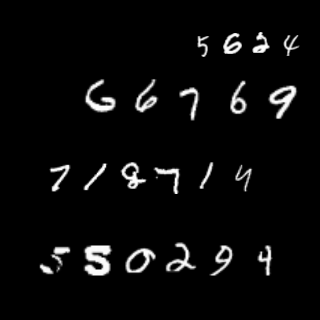 5624
66769
718714
550294